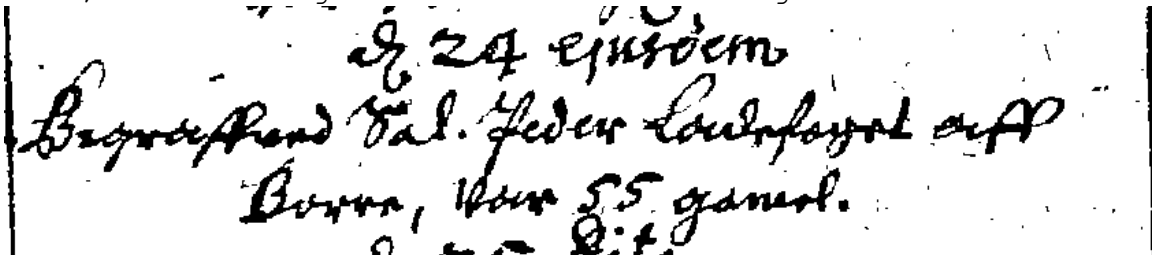 d. 24 ejusdem
Begraffved Sal. Peder Ladefoget aff
Borre, var 55 gamel.